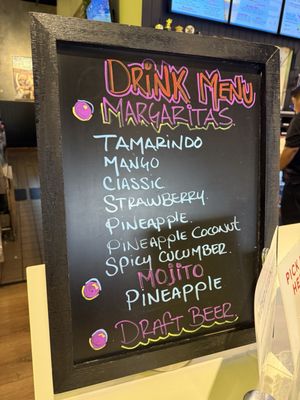 DRINK MENU
MARGARITAS
TAMARINDO
MANGO
CLASSIC
STRAWBERRY.
PINEAPPLE.
PINEAPPLE COCONUT
SPICY CUCUMBER.
MOJITO
PINEAPPLE
DRAFT BEER.